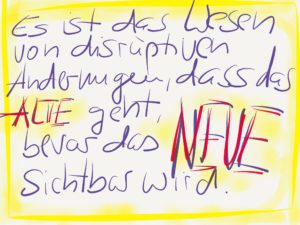 Es ist das Wesen
von disruptiven
Änderungen, dass das
ALTE geht,
bevor das NEUE
sichtbar wird.